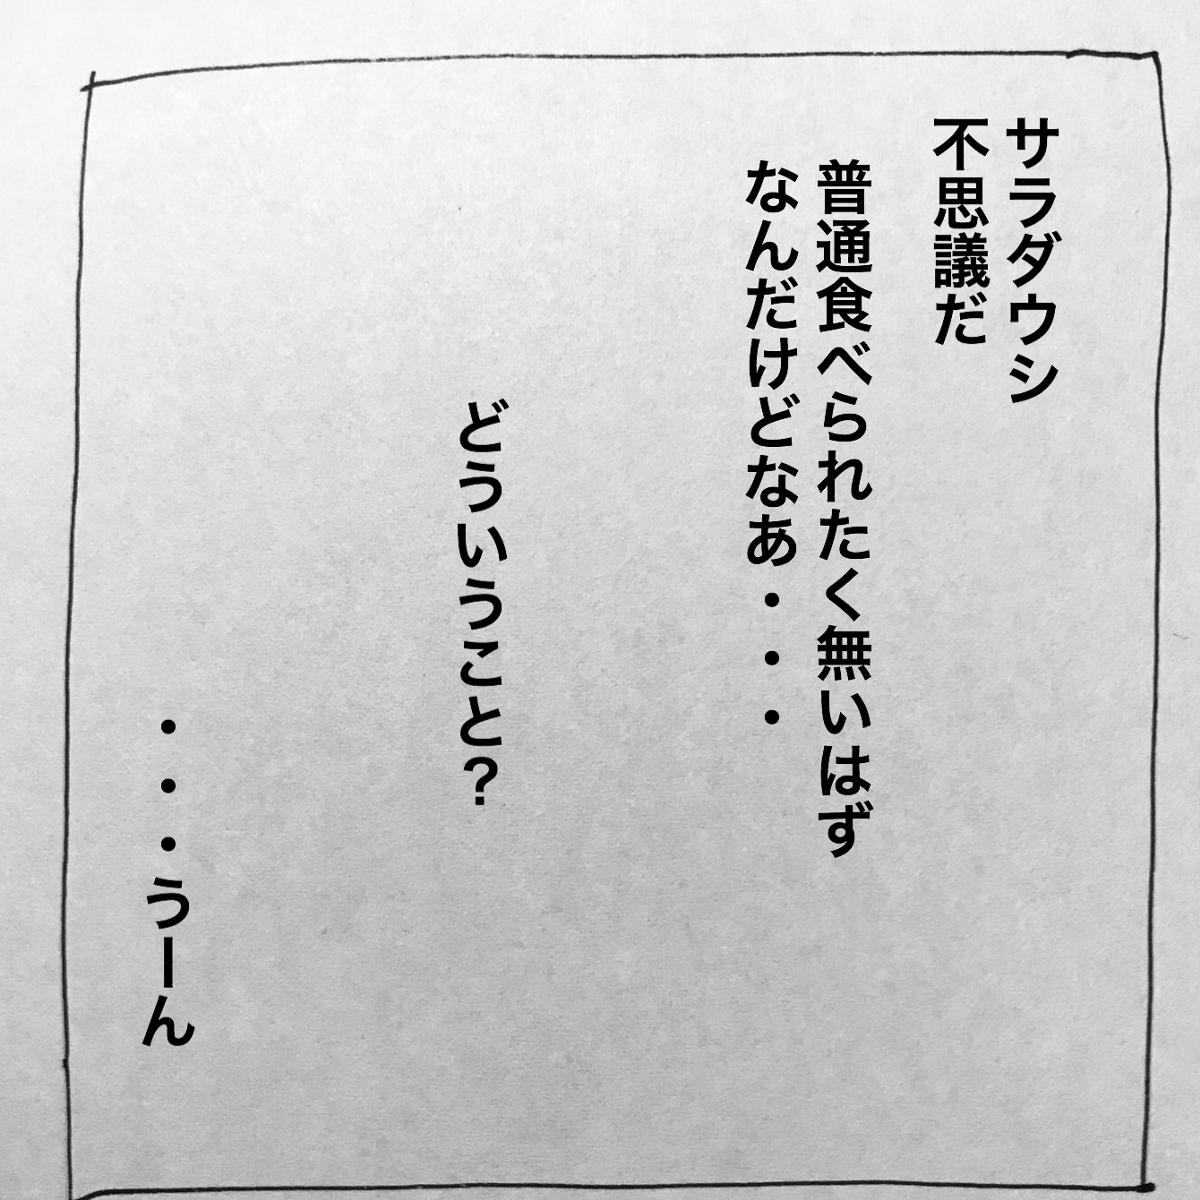 サラダウシ
不思議だ
普通食べられたく無いはず
なんだけどなあ・・・
どういうこと?
・・・うーん